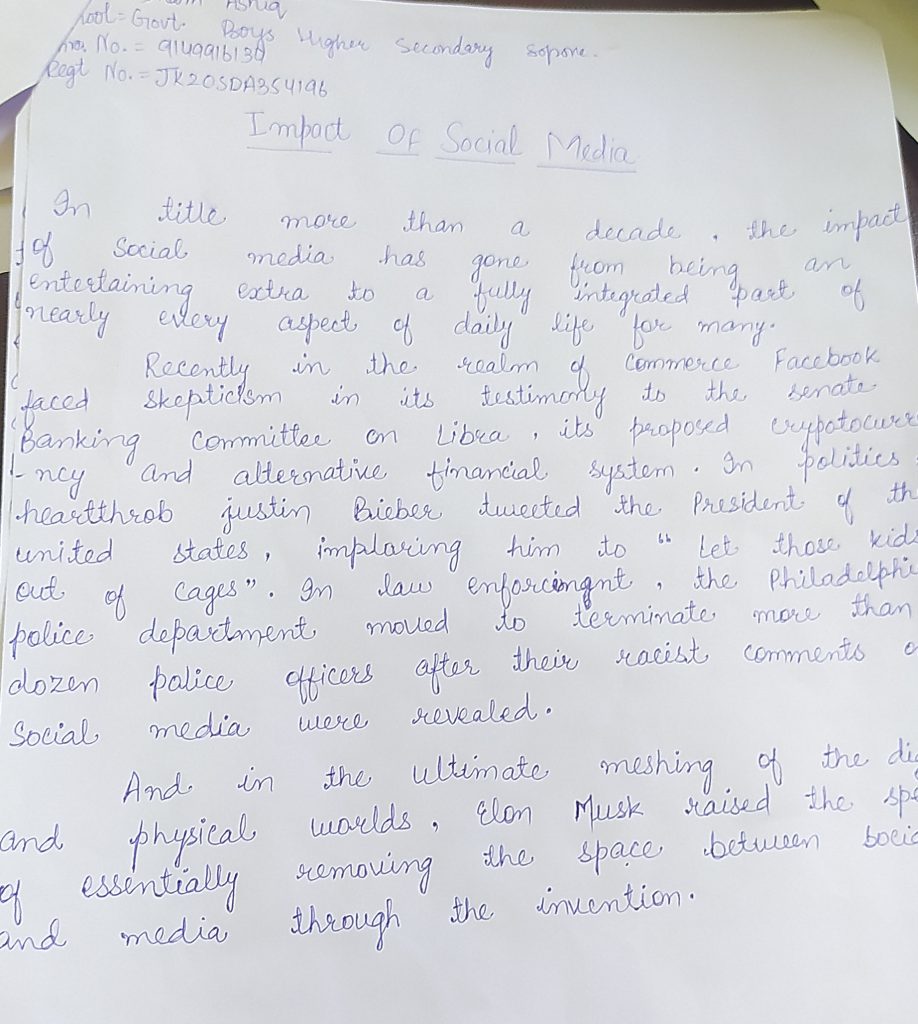 Ashiq
hool = Govt. Boys Higher Secondary Sopore.
No. = 9149916139
Regt No. = JK20SDA354196
Impact Of Social Media
In title more than a decade, the impact
of Social media has gone from being an
entertaining extra to a fully integrated part of
nearly every aspect of daily life for many.
Recently in the realm of Commerce Facebook
faced skepticism in its testimony to the senate
Banking Committee on Libra, its proposed crypotocurr
-ncy and alternative financial system. In politics
heartthrob justin Bieber tweeted the President of th
united states, imploring him to "Let those kids
out of cages". In law enforcingnt, the Philadelphi
police department moved to terminate more than
dozen police officers after their racist comments o
Social media were revealed.
And in the ultimate meshing of the dig
and physical worlds, Elon Musk raised the spe
of essentially removing the space between socia
and media through the invention.